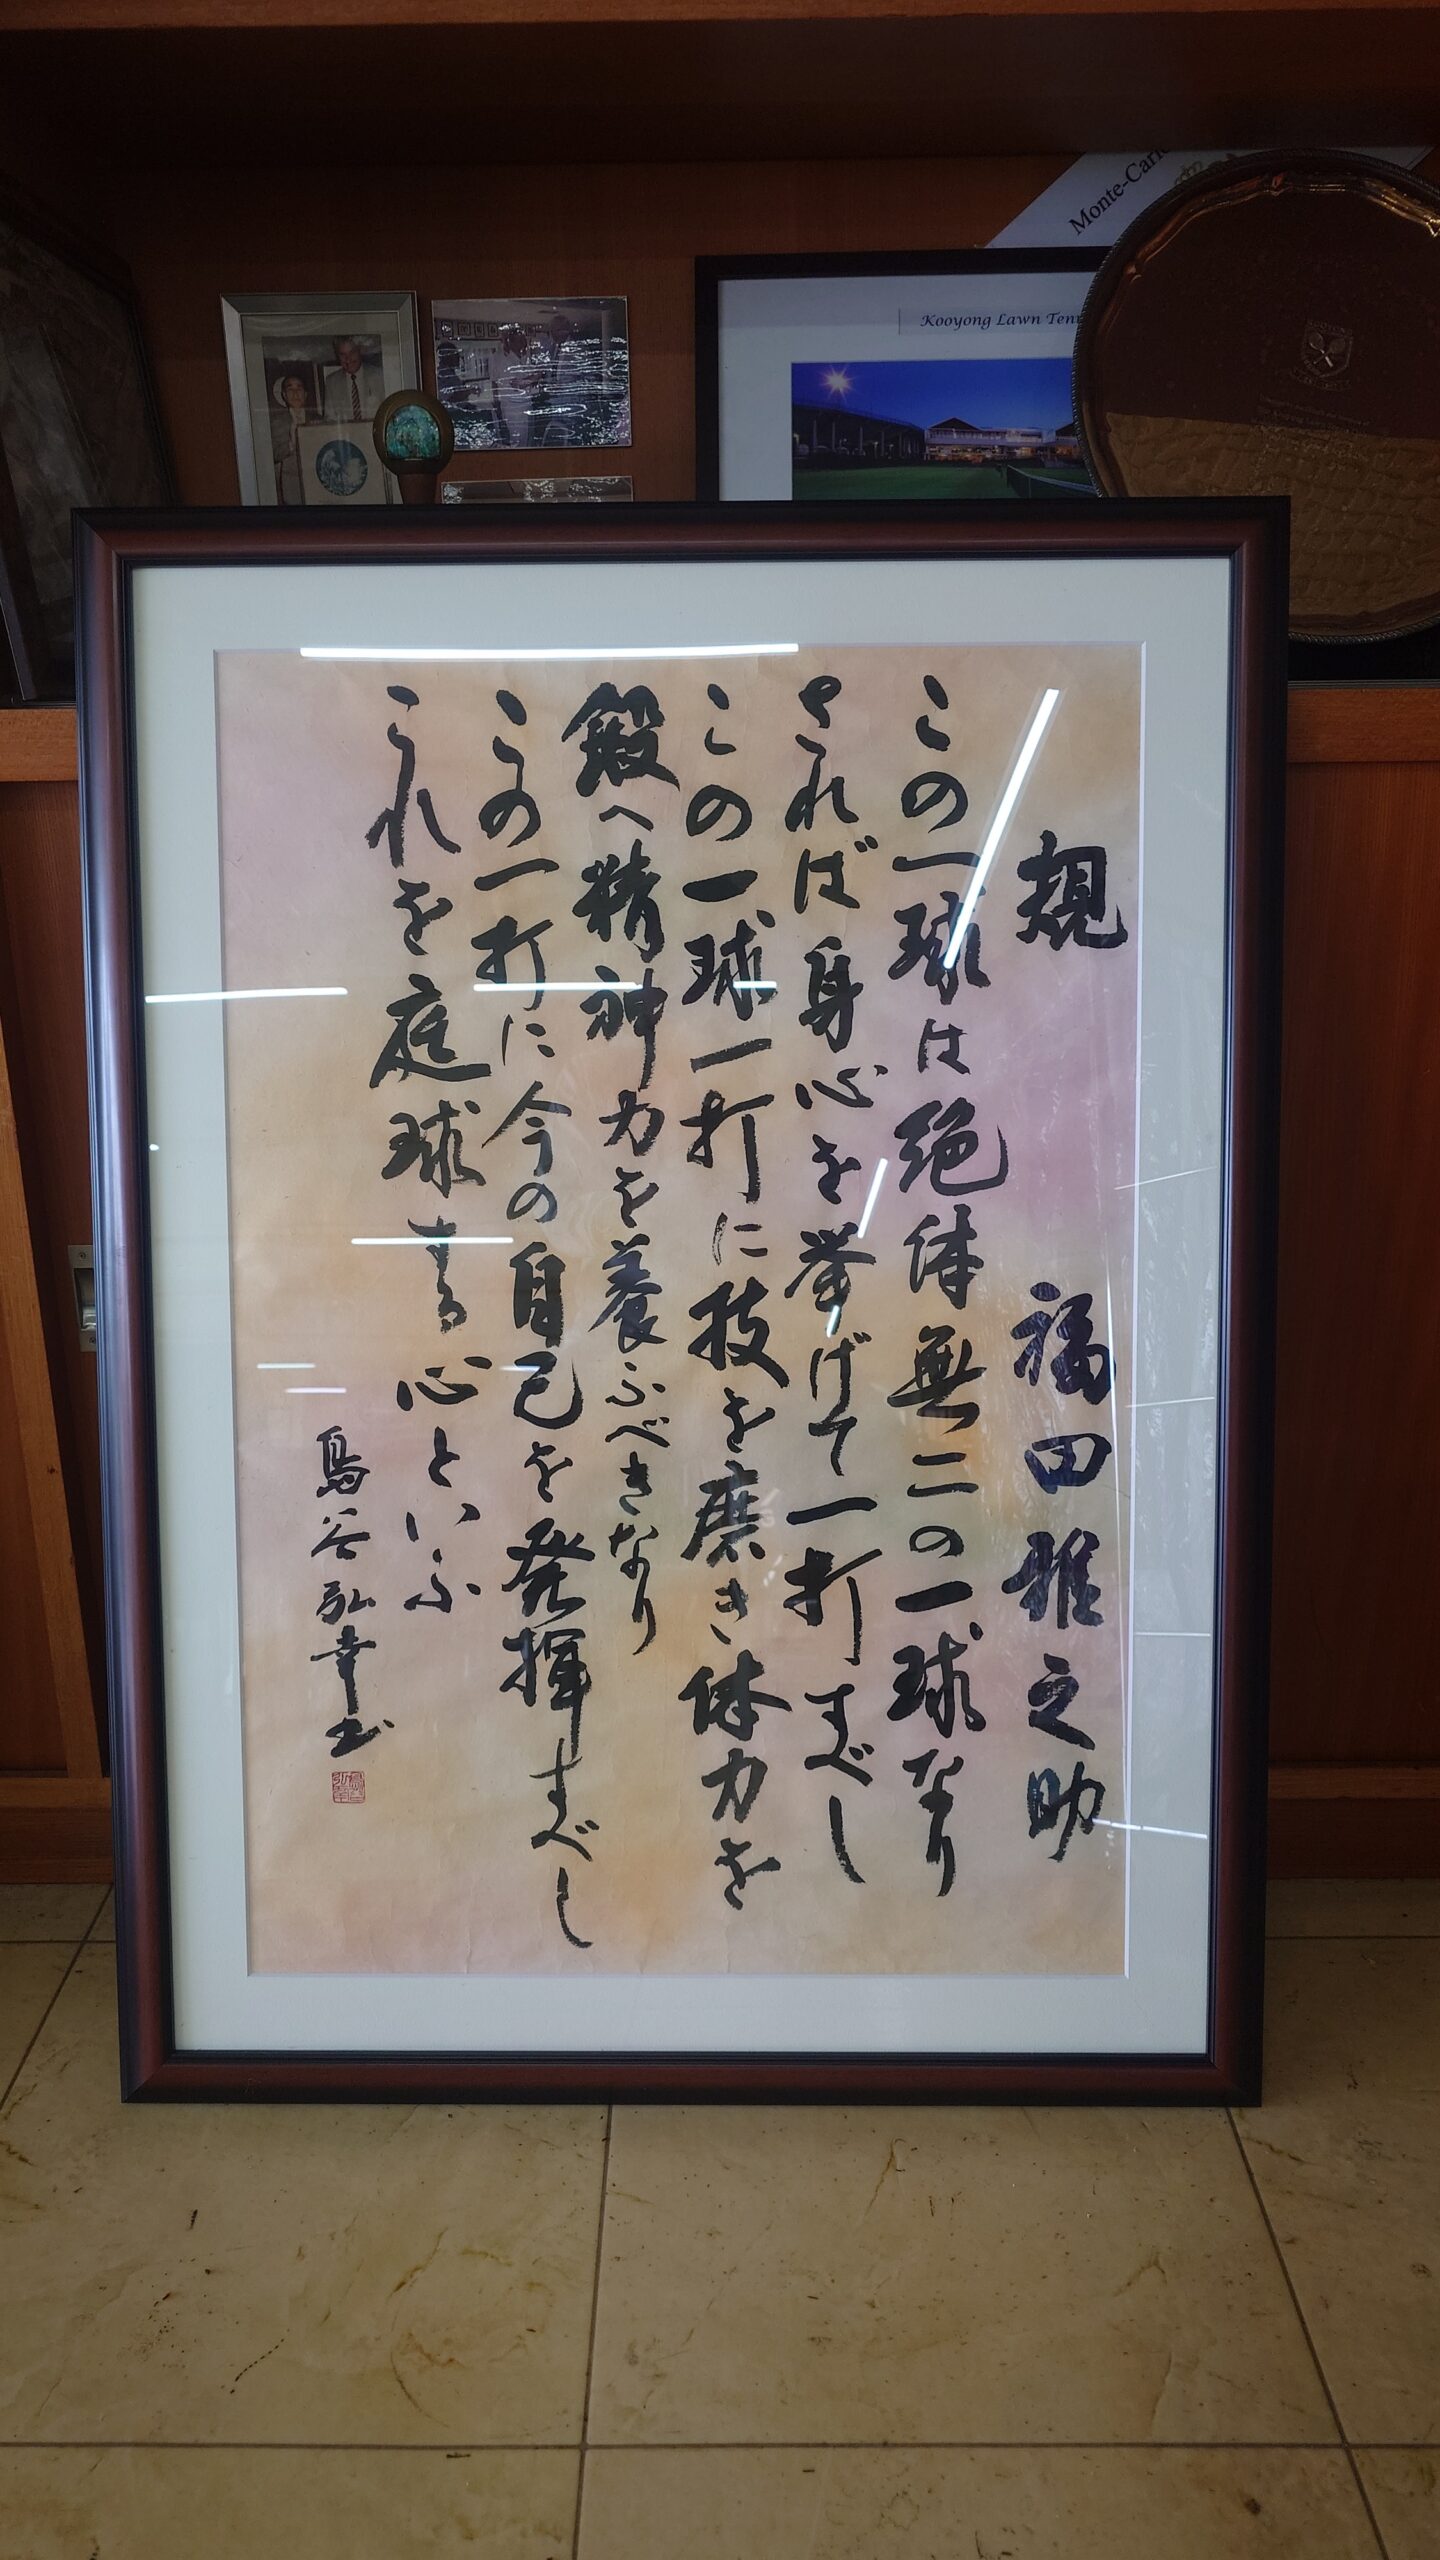 規　福田雅之助
この一球は絶体無二の一球なり
されば身心を挙げて一打すべし
この一球一打に技を磨き体力を
鍛へ精神力を養ふべきなり
この一打に今の自己を発揮すべし
これを庭球する心といふ
鳥谷弘幸書
Kooyong Lawn
Monte-Carl